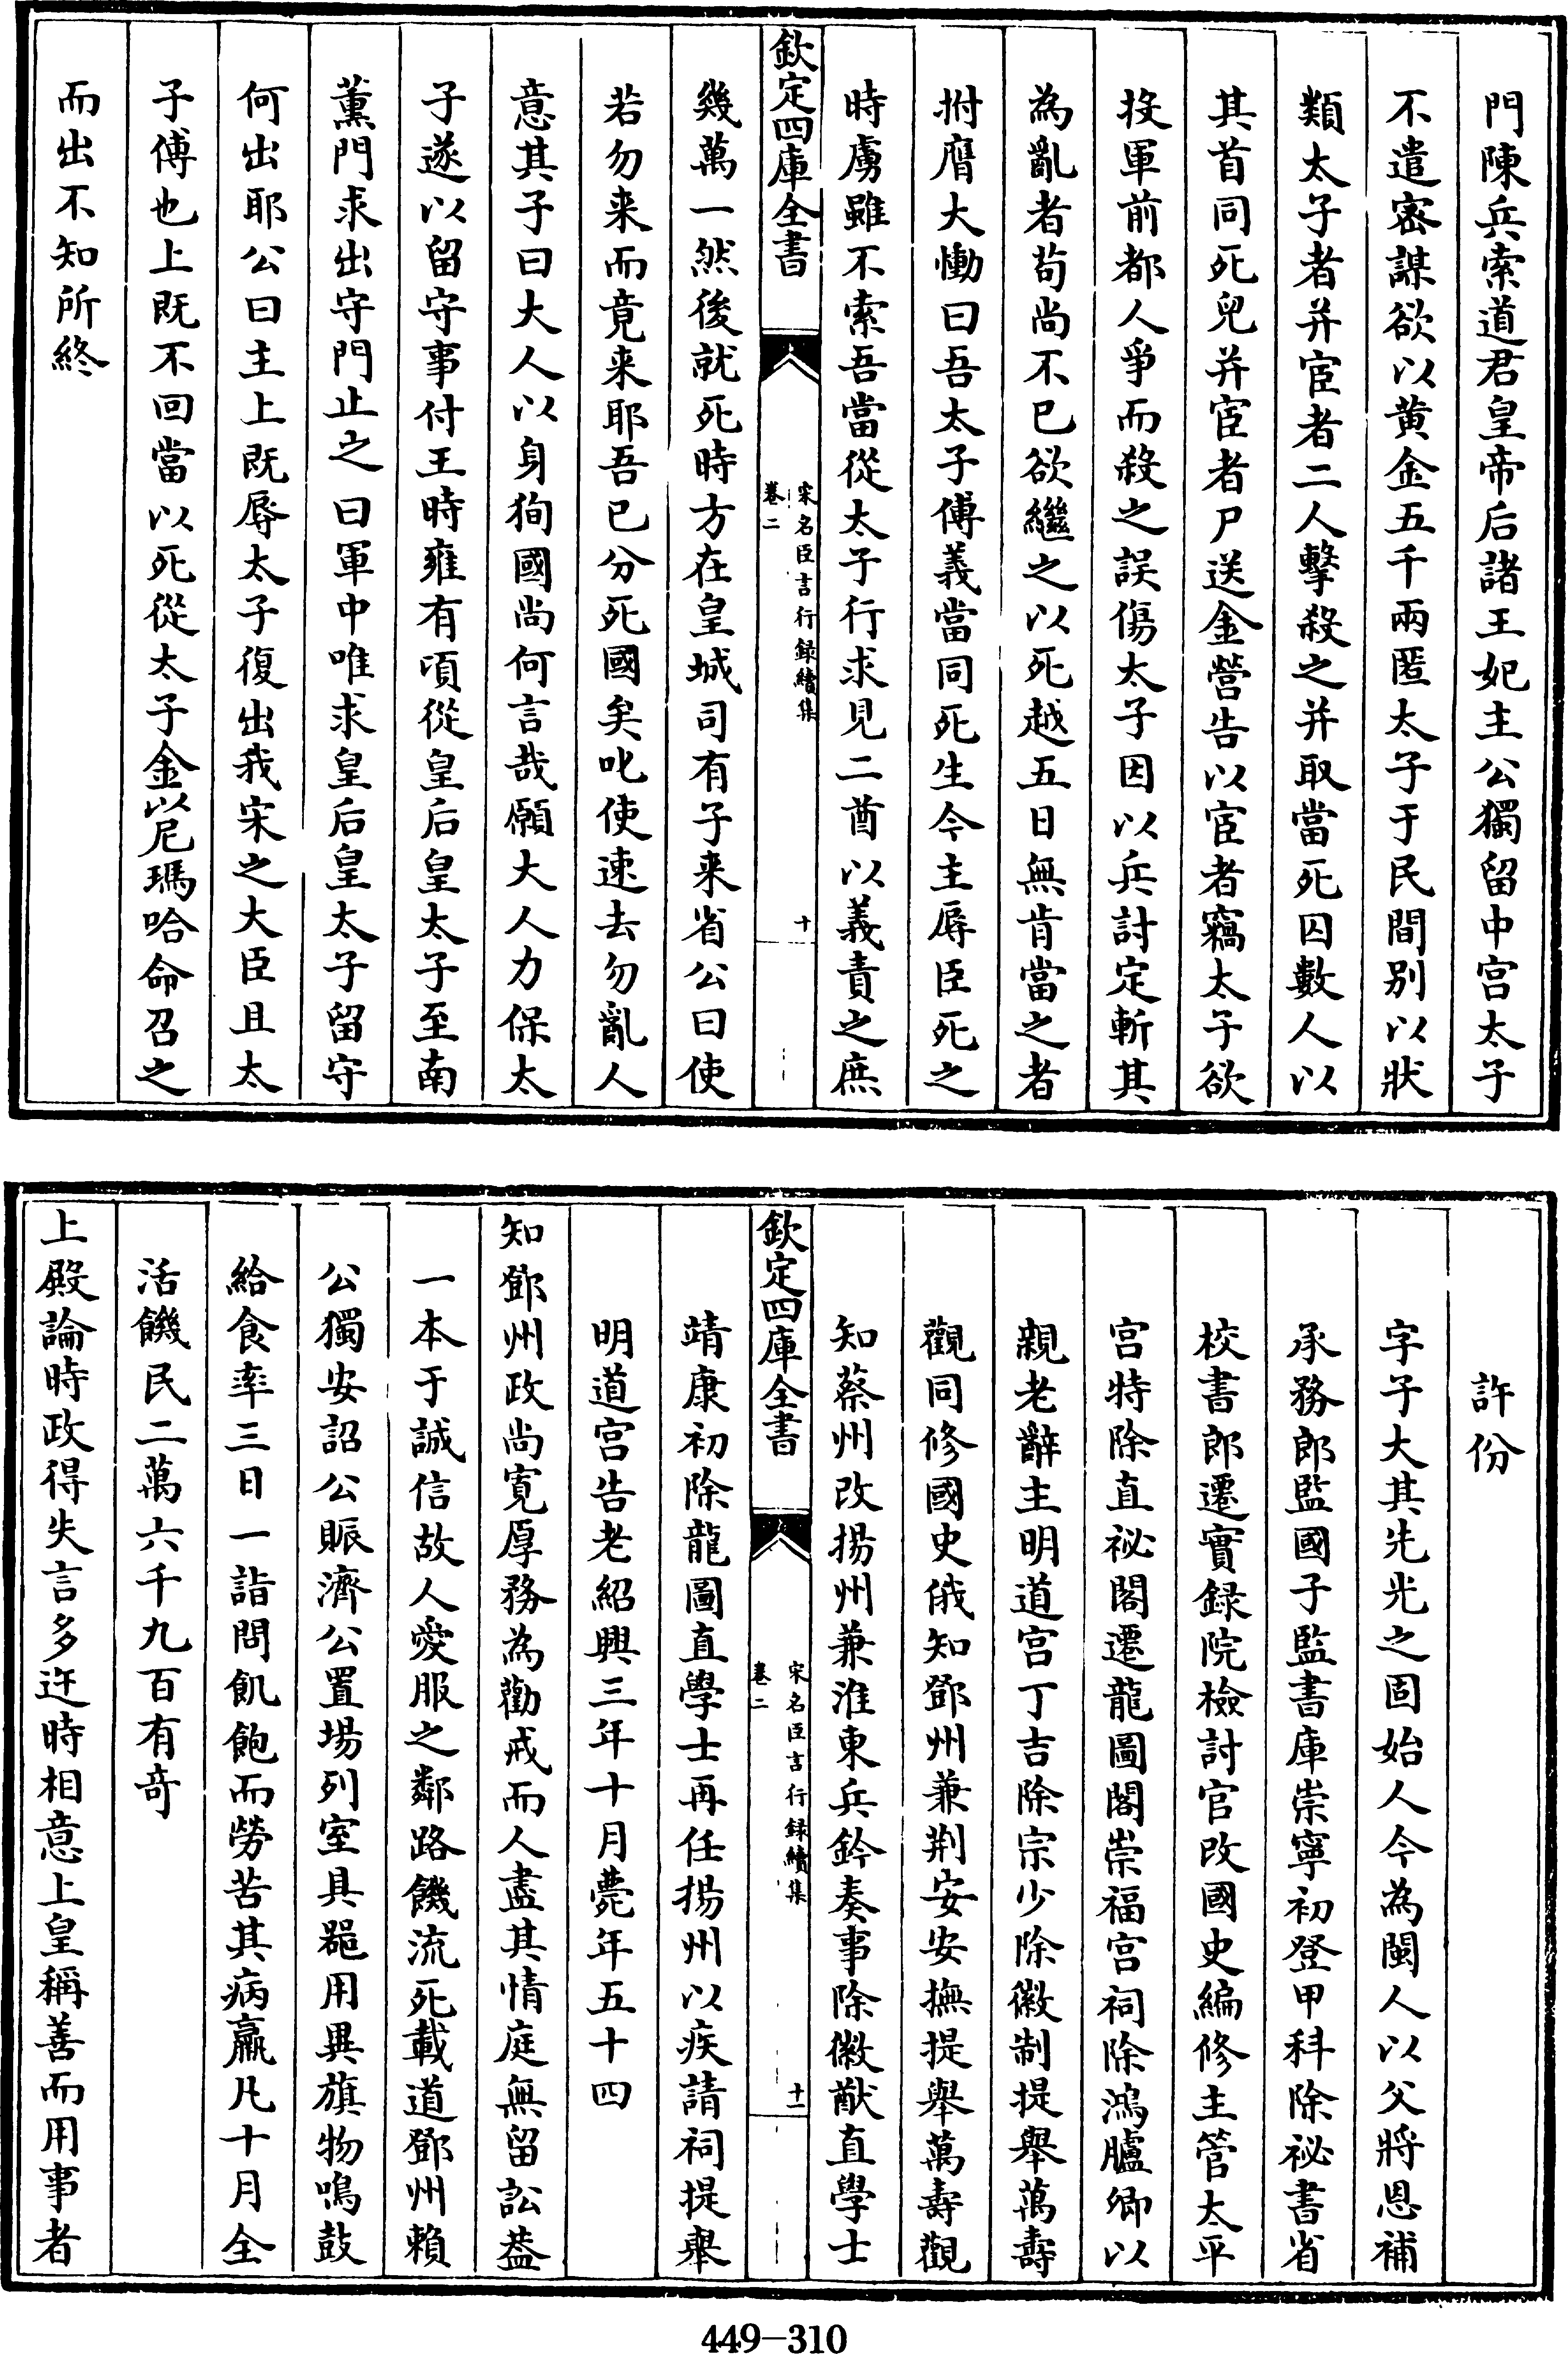 門陳兵索道君皇帝后諸王妃主公獨留中宫太子
不遣密謀欲以黄金五千兩匿太子于民間别以狀
類太子者并宦者二人擊殺之并取當死囚數人以
其首同死皃并宦者尸送金營告以宦者竊太子欲
投軍前都人爭而殺之誤傷太子因以兵討定斬其
為亂者苟尚不已欲繼之以死越五日無肯當之者
拊膺大慟曰吾太子傅義當同死生今主辱臣死之
時虜雖不索吾當從太子行求見二酋以義責之庶
欽定四庫全書
宋名臣言行録續集
卷二
十
幾萬一然後就死時方在皇城司有子来省公曰使
若勿来而竟来耶吾已分死國矣叱使速去勿亂人
意其子曰大人以身狥國尚何言哉願大人力保太
子遂以留守事付王時雍有頃從皇后皇太子至南
薰門求出守門止之曰軍中唯求皇后皇太子留守
何出耶公曰主上既辱太子復出我宋之大臣且太
子傅也上既不回當以死從太子金以尼瑪哈命召之
而出不知所終
許份
字子大其先光之固始人今為閩人以父將恩補
承務郎監國子監書庫崇寧初登甲科除祕書省
校書郎遷實録院檢討官改國史編修主管太平
宫特除直祕閣遷龍圖閣崇福宫祠除鴻臚卿以
親老辭主明道宫丁吉除宗少除徽制提舉萬壽
觀同修國史俄知鄧州兼荆安安撫提舉萬壽觀
知蔡州改揚州兼淮東兵鈐奏事除徽猷直學士
欽定四庫全書
宋名臣言行録續集
卷二
十一
靖康初除龍圖直學士再任揚州以疾請祠提舉
明道宫告老紹興三年十月薨年五十四
知鄧州政尚寛厚務為勸戒而人盡其情庭無留訟葢
一本于誠信故人愛服之鄰路饑流死載道鄧州賴
公獨安詔公賑濟公置場列室具器用異旗物鳴鼓
給食率三日一詣問飢飽而勞苦其病羸凡十月全
活饑民二萬六千九百有奇
上殿論時政得失言多迕時相意上皇稱善而用事者
449-310